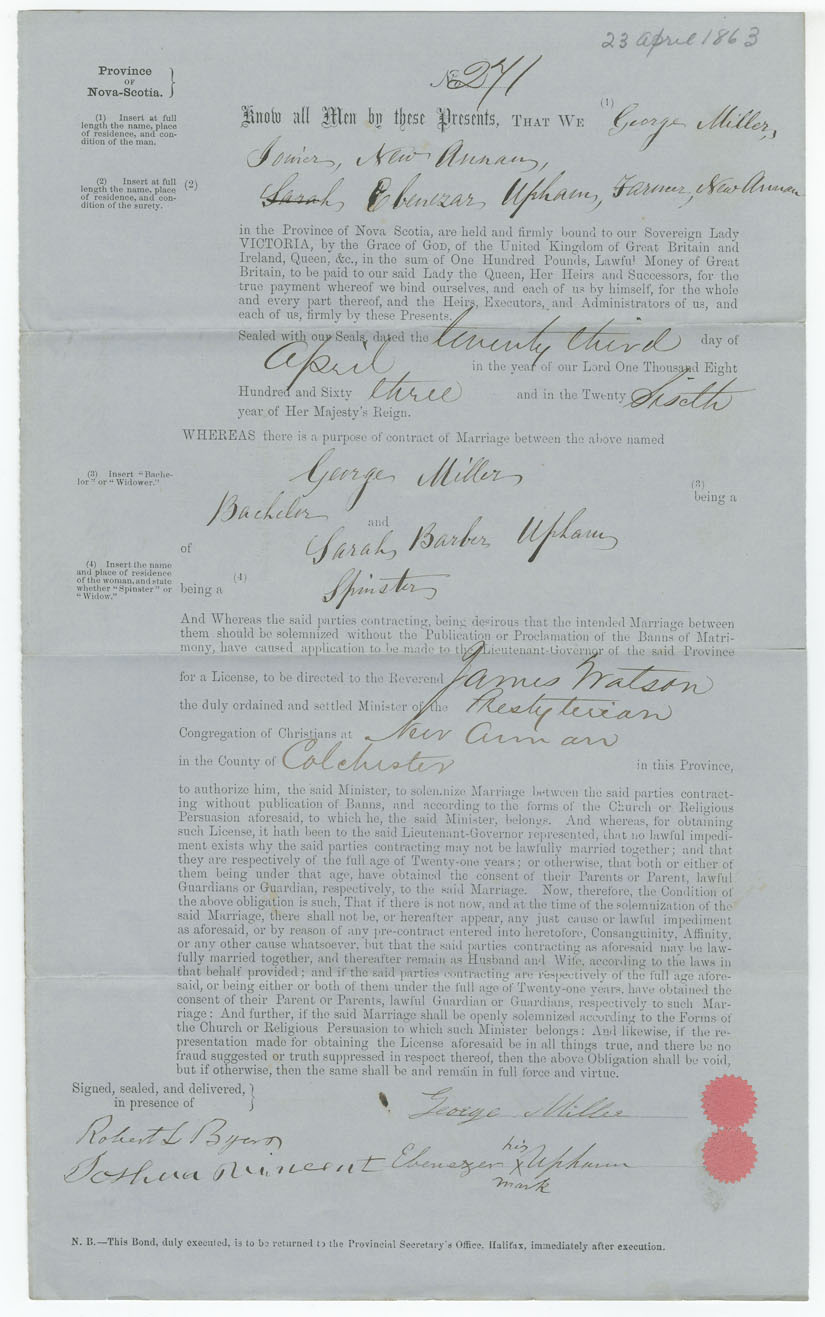 23 April 1863
Province
OF
Nova-Scotia.
No 271
(1) Insert at full
length the name, place
of residence, and con-
dition of the man.
Know all Men by these Presents, THAT WE (1) George Miller,
Joiner, New Annan,
(2) Insert at full
length the name, place
of residence, and con-
dition of the surety.
(2) Sarah Ebenezar Upham, Farmer, New Annan
in the Province of Nova Scotia, are held and firmly bound to our Sovereign Lady
VICTORIA, by the Grace of GOD, of the United Kingdom of Great Britain and
Ireland, Queen, &c., in the sum of One Hundred Pounds, Lawful Money of Great
Britain, to be paid to our said Lady the Queen, Her Heirs and Successors, for the
true payment whereof we bind ourselves, and each of us by himself, for the whole
and every part thereof, and the Heirs, Executors, and Administrators of us, and
each of us, firmly by these Presents.
Sealed with our Seals, dated the twenty third day of
April in the year of our Lord One Thousand Eight
Hundred and Sixty three and in the Twenty Sixth
year of Her Majesty's Reign.
WHEREAS there is a purpose of contract of Marriage between the above named
(3) Insert "Bache-
lor" or "Widower."
George Miller (3) being a
Bachelor and
of Sarah Barber Upham
(4) Insert the name
and place of residence
of the woman, and state
whether "Spinster" or
"Widow."
being a (4) Spinster
And Whereas the said parties contracting, being desirous that the intended Marriage between
them should be solemnized without the Publication or Proclamation of the Banns of Matri-
mony, have caused application to be made to the Lieutenant-Governor of the said Province
for a License, to be directed to the Reverend James Watson
the duly ordained and settled Minister of the Presbyterian
Congregation of Christians at New Annan
in the County of Colchester in this Province,
to authorize him, the said Minister, to solemnize Marriage between the said parties contract-
ing without publication of Banns, and according to the forms of the Church or Religious
Persuasion aforesaid, to which he, the said Minister, belongs. And whereas, for obtaining
such License, it hath been to the said Lieutenant-Governor represented, that no lawful impedi-
ment exists why the said parties contracting may not be lawfully married together; and that
they are respectively of the full age of Twenty-one years; or otherwise, that both or either of
them being under that age, have obtained the consent of their Parents or Parent, lawful
Guardians or Guardian, respectively, to the said Marriage. Now, therefore, the Condition of
the above obligation is such, That if there is not now, and at the time of the solemnization of the
said Marriage, there shall not be, or hereafter appear, any just cause or lawful impediment
as aforesaid, or by reason of any pre-contract entered into heretofore, Consanguinity, Affinity,
or any other cause whatsoever, but that the said parties contracting as aforesaid may be law-
fully married together, and thereafter remain as Husband and Wife, according to the laws in
that behalf provided; and if the said parties contracting are respectively of the full age afore-
said, or being either or both of them under the full age of Twenty-one years, have obtained the
consent of their Parent or Parents, lawful Guardian or Guardians, respectively to such Mar-
riage: And further, if the said Marriage shall be openly solemnized according to the Forms of
the Church or Religious Persuasion to which such Minister belongs: And likewise, if the re-
presentation made for obtaining the License aforesaid be in all things true, and there be no
fraud suggested or truth suppressed in respect thereof, then the above Obligation shall be void,
but if otherwise, then the same shall be and remain in full force and virtue.
Signed, sealed, and delivered,
in presence of
George Miller
Robert L Byers
Joshua Vincent Ebenezer his X mark Upham
N. B.—This Bond, duly executed, is to be returned to the Provincial Secretary's Office, Halifax, immediately after execution.